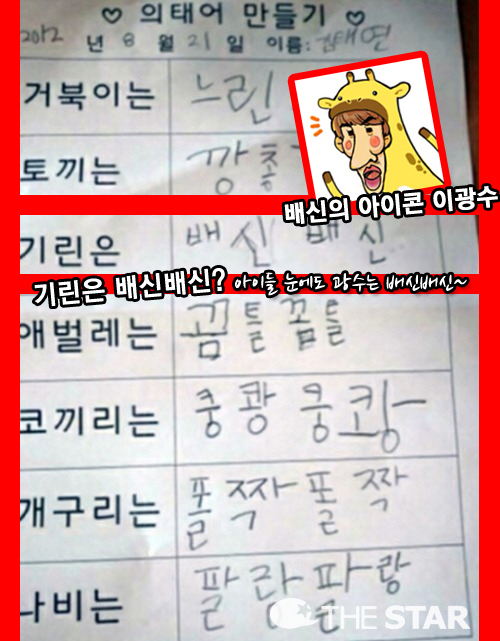 ♡ 의태어 만들기 ♡
2012 년 8 월 21 일 이름: 김태연
거북이는 느린
토끼는 깡충
배신의 아이콘 이광수
기린은 배신 배신
기린은 배신배신? 아이들 눈에도 광수는 배신배신~
애벌레는 꿈틀 꿈틀
코끼리는 쿵쾅 쿵쾅
개구리는 폴짝 폴짝
나비는 팔랑 팔랑
THE STAR